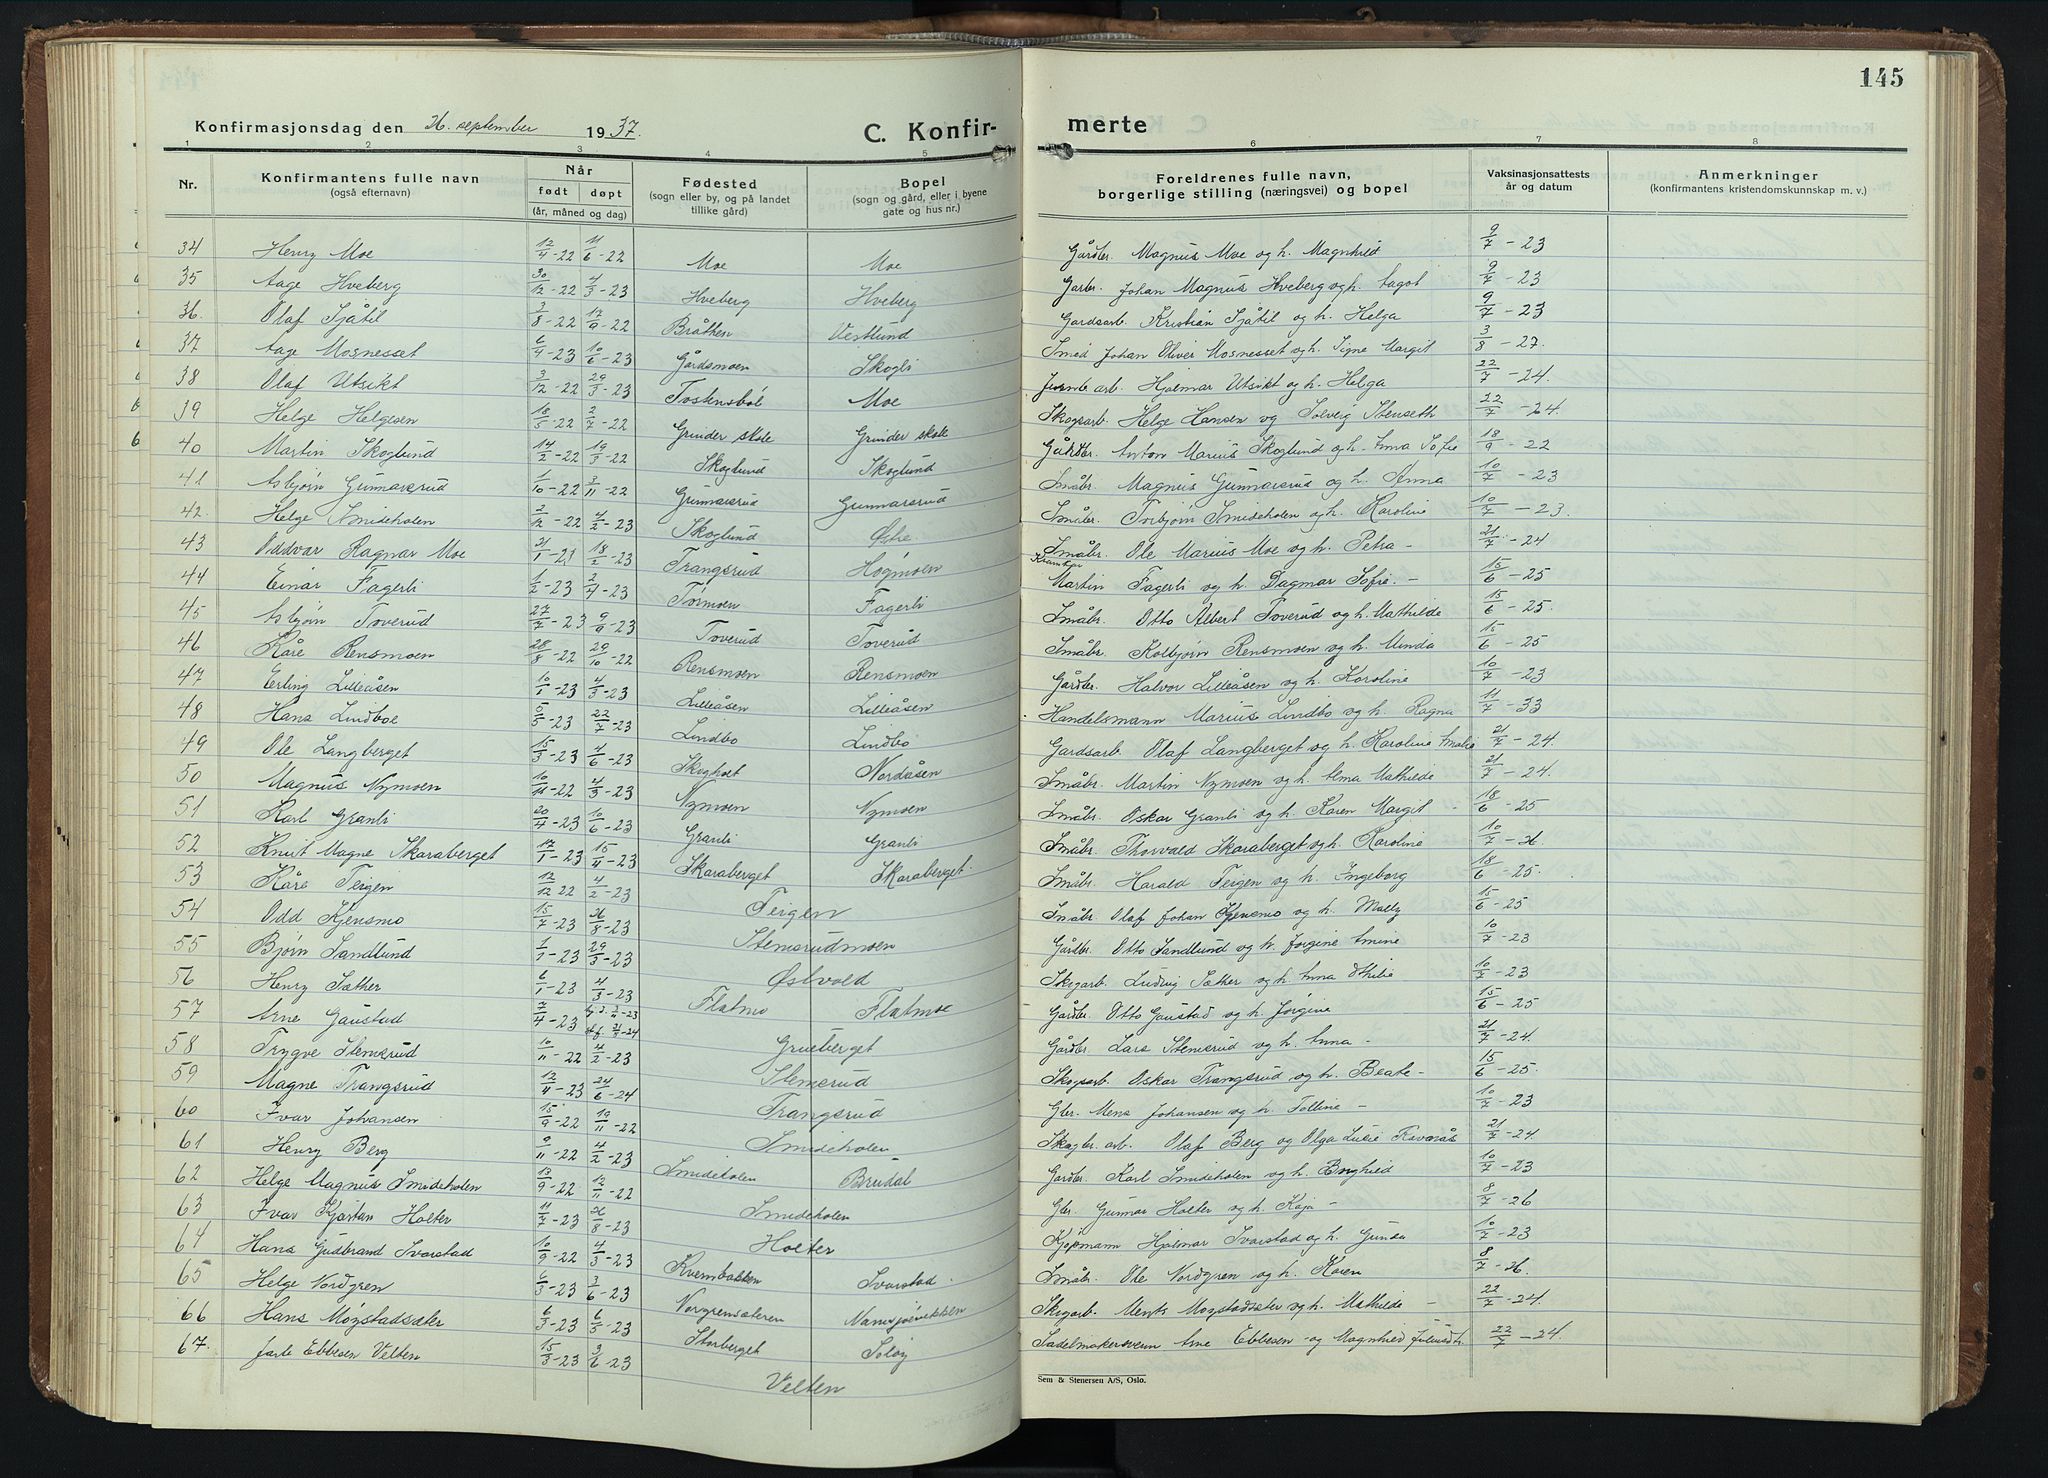 145
Konfirmasjonsdag den 26. september 1937.
C. Konfir-
merte
1 2 3 4 5 6 7 8
Nr.
Konfirmantens fulle navn
(også efternavn)
Når
født døpt
(år, måned og dag)
Fødested
(sogn eller by, og på landet
tillike gård)
Bopel
(sogn og gård, eller i byene
gate og hus nr.)
Foreldrenes fulle navn,
borgerlige stilling (næringsvei) og bopel
Vaksinasjonsattests
år og datum
Anmerkninger
(konfirmantens kristendomskunnskap m. v.)
34 Henry Moe 12/4-22 11/6-22 Moe Moe Gårdbr. Magnus Moe og h. Magnhild 9/7-23
35 Aage Hveberg 30/12-22 4/3-23 Hveberg Hveberg Gårbr. Johan Magnus Hveberg og h. Aagot 9/7-23
36. Olaf Sjåtil 3/8-22 17/9-22 Bråthen Vestlund Gardsarb. Kristian Sjåtil og h. Helga 9/7-23
37 Aage Mosnesset 6/4-23 10/6-23 Gårdsmoen Skogli Smed Johan Oliver Mosnesset og h. Signe Margit 3/8-27.
38 Olaf Utsikt 3/12-22 29/3-23 Tostensbøl Moe arb. Hjalmar Utsikt og h. Helga 22/7-24.
39 Helge Helgesen 18/5-22 2/7-22 Grinder skole Grinder skole Skogsarb. Helge Hansen og Solveig Stenseth 22/7-24.
40 Martin Skoglund 14/2-22 19/3-22 Skoglund Skoglund Gårdbr. Anton Marius Skoglund og h. Anna Sofie 18/9-22
41 Asbjørn Gunnarsrud 1/10-22 3/11-22 Gunnarsrud Gunnarsrud Småbr. Magnus Gunnarsrud og h. Anna 10/7-23
42. Helge Smideholen 2/12-22 4/2-23 Skoglund Østre Småbr. Torbjørn Smideholen og h. Karoline 10/7-23.
43 Oddvar Ragnar Moe 21/1-21 18/2-23 Trangsrud Høgmoen Småbr. Ole Marius Moe og h. Petra - 21/7-24
44 Einar Fagerli 1/2-23 2/4-23 Tormoen Fagerli Martin Fagerli og h. Dagmar Sofie - 15/6-25
45 Asbjørn Toverud 27/7-23 9/9-23 Toverud Toverud Småbr. Otto Albert Toverud og h. Mathilde 15/6-25.
46 Kåre Rensmoen 28/8-22 29/10-22 Rensmoen Rensmoen Småbr. Kolbjørn Rensmoen og h. Minda 15/6-25
47 Erling Lilleåsen 10/1-23 4/3-23 Lilleåsen Lilleåsen Gårdbr. Halvor Lilleåsen og h. Karoline 10/7-23
48 Hans Lindboe 5/5-23 22/7-23 Lindbo Lindbo Handelsmann Marius Lindbo og h. Ragna 11/7-33
49 Ole Langberget 15/3-23 4/6-23 Skogholt Nordåsen Gardsarb. Olaf Langberget og h. Karoline Amalie 21/7-24.
50 Magnus Nymoen 10/11-22 4/3-23 Nymoen Nymoen Småbr. Martin Nymoen og h. Anna Mathilde 21/7-24.
51 Karl Granli 20/4-23 10/6-23 Granli Granli Småbr. Oskar Granli og h. Karen Margit - 18/6-25
52 Knut Magne Skaraberget 17/1-23 15/4-23 Skaraberget Skaraberget. Småbr. Thorvald Skaraberget og h. Karoline 10/7-26
53 Kåre Teigen 12/12 22 4/2-23 Teigen Småbr. Harald Teigen og h. Ingeborg 18/6-25.
54 Odd Kjensmo 15/7-23 26/8-23 Stemsrudmoen Småbr. Olaf Johan Kjensmo og h. Mally 15/6-25
55 Bjørn Sandlund 1/1-23 29/3-23 Østvold Gårdbr. Otto Sandlund og h. Jørgine Amine 10/7-23
56 Henry Sæther 6/1-23 4/3-23 Flatmo Flatmoe Skogarb. Ludvig Sæther og h. Anna Othilie 10/7-23
57 Arne Gaustad 2/4-23 Grueberget Gårdbr. Otto Gaustad og h. Jørgine 15/6-25
58 Trygve Stemsrud 10/11-22 4/2-23 Stemsrud Gårdbr. Lars Stemsrud og h. Anna - 21/7-24.
59 Magne Trangsrud 12/11-23 24/6-24 Trangsrud Skogsarb. Oskar Trangsrud og h. Beate - 15/6-25.
60 Ivar Johansen 15/9-22 19/11-22 Smideholen Gbr. Mens Johansen og h. Folline - 10/7-23
61 Henry Berg 9/11-22 4/2-23 Smideholen Brudal Skogbr. arb. Olaf Berg og Olga Lucie Ravnås 21/7-24.
62 Helge Magnus Smideholen 13/9-22 12/11-22 Smideholen Gårdbr. Karl Smideholen og h. Borghild 10/7-23
63 Ivar Kjartan Holter 11/7-23 26/8-23 Holter Gbr. Gunnar Holter og h. Kaja - 8/7-26
64 Hans Gudbrand Svarstad 10/9-22 4/3-23 Kvernbakken Svarstad Kjøpmann Hjalmar Svarstad og h. Gunda 10/7-23
65 Helge Nordgren 6/3-23 3/6-23 Norgrensæteren Småbr. Ole Nordgren og h. Karen 8/7-26.
66 Hans Møystadsæter 6/3-23 6/5-23 Storberget Soløy Skogarb. Mentz Møystadsæter og h. Mathilde - 22/7-24.
67. Jarle Ebbesen Velten 15/3-23 3/6-23 Velten Sadelmakersvenn Arne Ebbesen og Magnhild 22/7-24.
Sem & Stenersen A/S, Oslo.